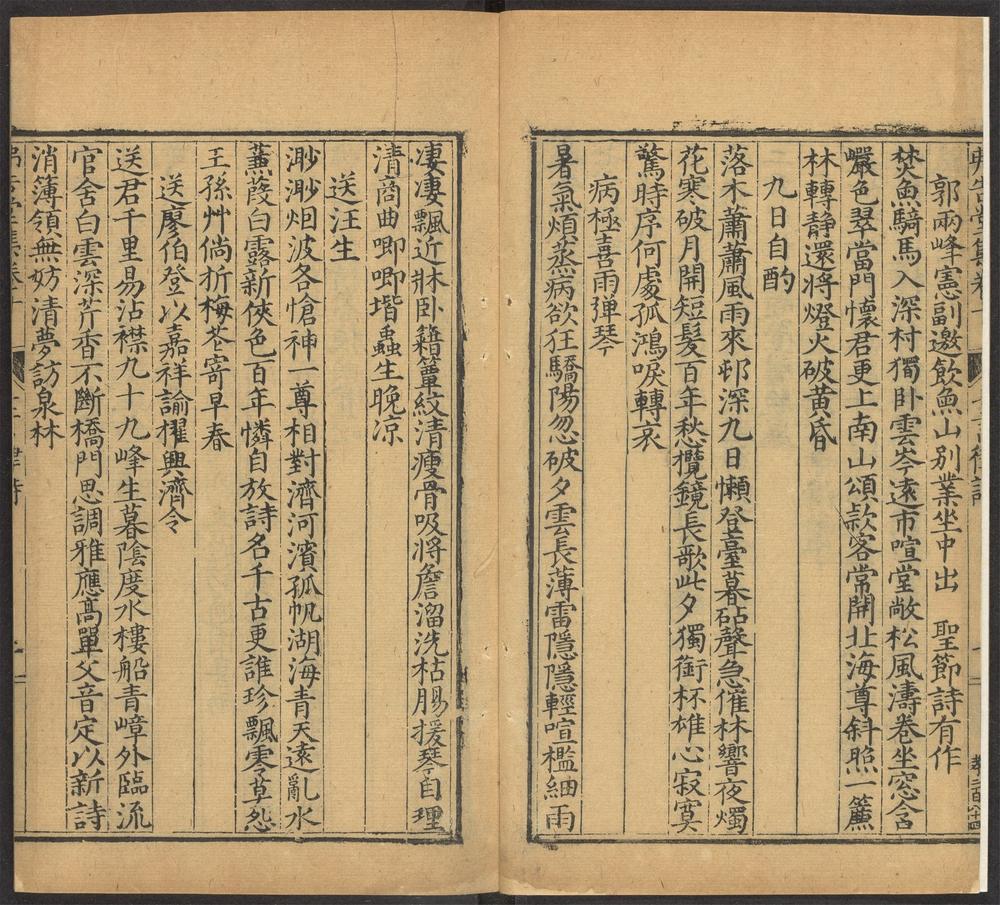 郭兩峰憲副邀飲魚山別業坐中出　聖節詩有作
焚魚騎馬入深村獨卧雲岑遠市喧堂敞松風濤卷坐窓含
巖色翠當門懷君更上南山頌欵客常開北海尊斜照一簾
林轉静還將燈火破黃昏
九日自酌
落木蕭蕭風雨來邨深九日懶登臺暮砧聲急催林響夜燭
花寒破月開短髮百年愁攬鏡長歌此夕獨銜杯雄心寂寞
驚時序何處孤鴻唳轉哀
病極喜雨弹琴
暑氣煩蒸病欲狂驕陽忽破夕雲長薄雷隱隱輕喧檻細雨
凄凄飄近牀卧籍簟紋清瘦骨吸將詹溜洗枯腸援琴自理
清商曲唧唧堦蟲生晚凉
送汪生
渺渺烟波各愴神一尊相對濟河濱孤帆湖海青天遠亂水
蒹葭白露新俠色百年憐自放詩名千古更誰珍飄零莫怨
王孫艸倘折梅花寄早春
送廖伯登以嘉祥諭擢興濟令
送君千里易沾襟九十九峰生暮陰度水樓船青嶂外臨流
官舍白雲深芹香不斷橋門思調雅應高單父音定以新詩
消簿領無妨清夢訪泉林